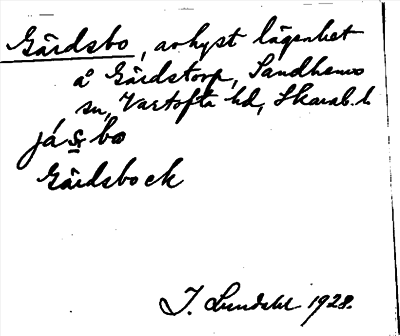 Gärdsbo, avhyst lägenhet
å Gärdstorp, Sandhems
sn, Vartofta hd, Skarab. l.
jásbo
Gärdsbo ek
J. Lundahl 1928.